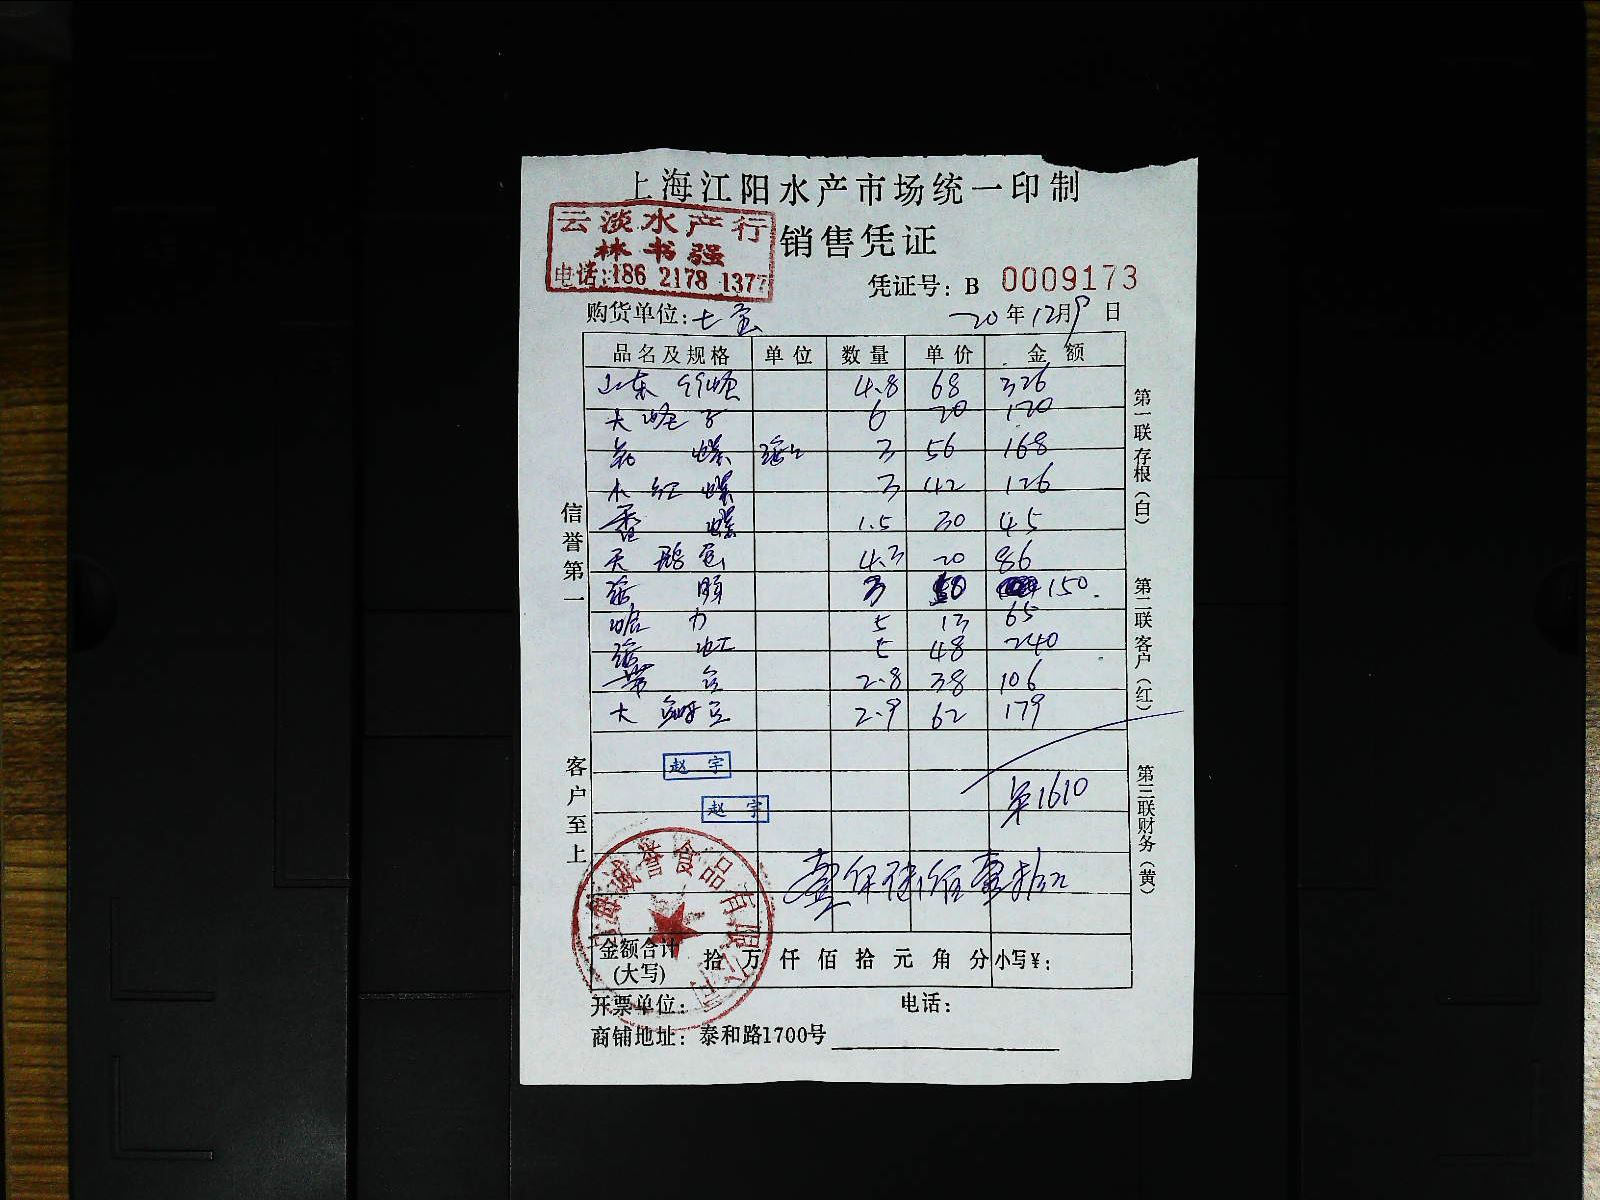 上海江阳水产市场统一印制
云淡水产行
林书强
电话:186 2178 1377
销售凭证
凭证号: B 0009173
购货单位: 七宝
20年12月9日
品名及规格 单位 数量 单价 金额
山东 4.8 68 326
大蛏子 6 20 120
花螺 3 56 168
水红螺 3 42 126
香螺 1.5 30 45
天鹅蛋 4.3 20 86
3 50 150.
蛤力 5 13 65
5 48 240
2.8 38 106
大 2.9 62 179
1610
赵宇
赵宇
壹仟陆佰壹拾元
信誉第一
客户至上
第一联存根(白)
第二联客户(红)
第三联财务(黄)
上海诚誉食品有限公司
金额合计(大写) 拾万仟佰拾元角分 小写¥:
开票单位: 电话:
商铺地址: 泰和路1700号